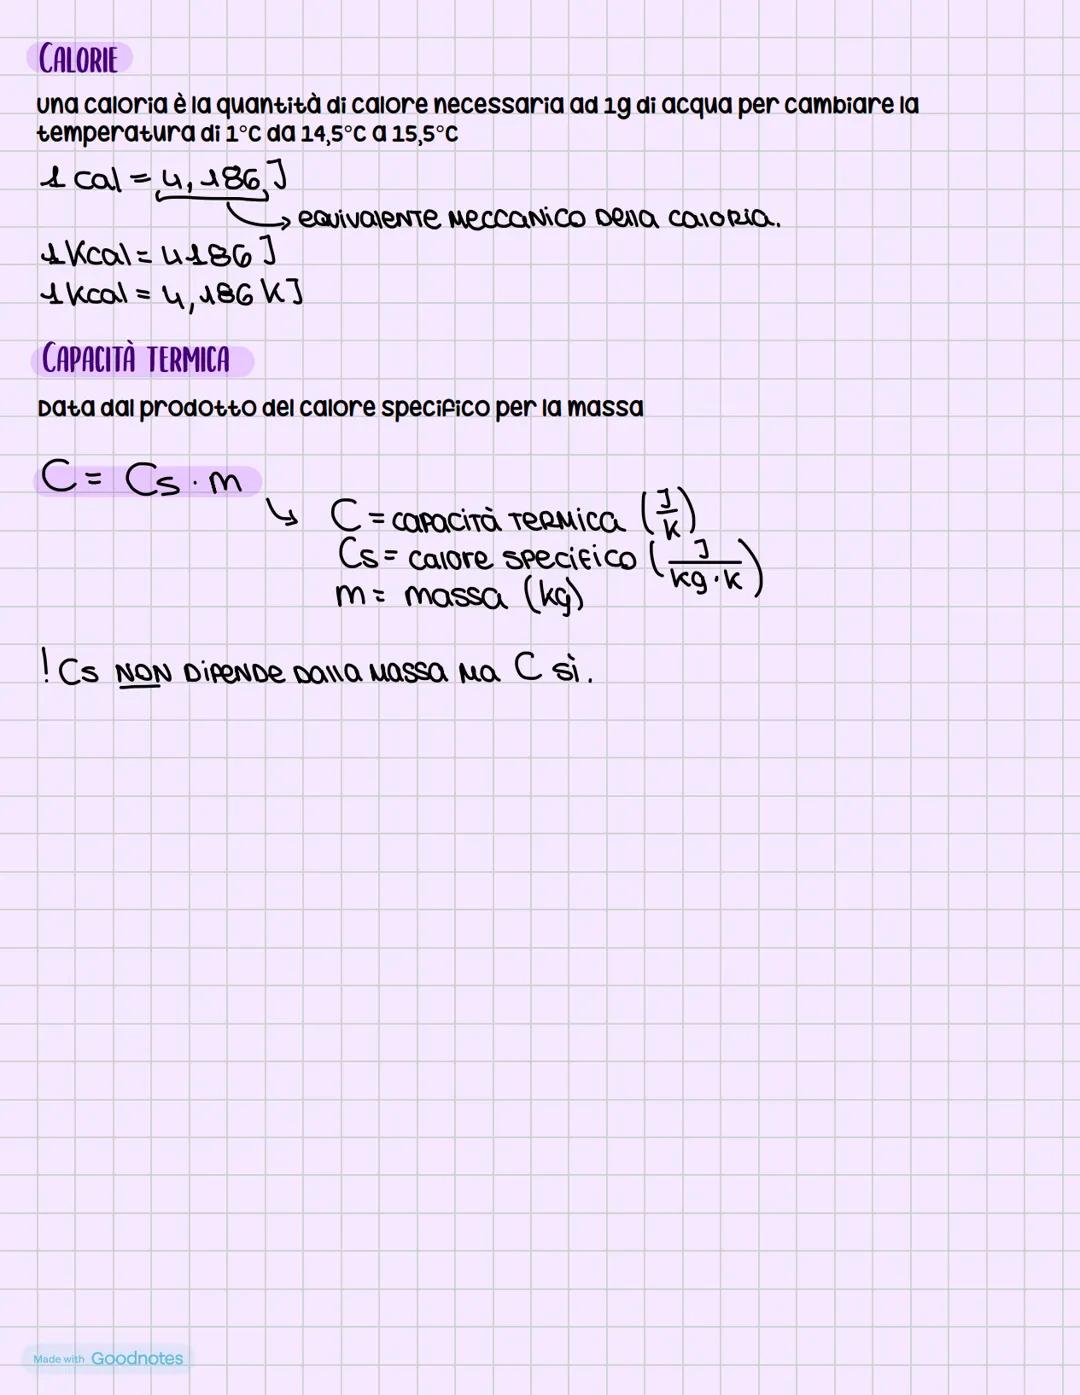 CALORIE
una caloria è la quantità di calore necessaria ad 1g di acqua per cambiare la
temperatura di 1°C da 14,5°C a 15,5°C
1 cal = 4,186 J
equivalente meccanico della caloria.
1 Kcal = 4186 J
1 kcal = 4,186 kJ
CAPACITÀ TERMICA
Data dal prodotto del calore specifico per la massa
C = Cs · m
C = capacità termica (J/K)
Cs = calore specifico (J/kg·K)
m = massa (kg)
! Cs NON DIPENDE DALLA MASSA MA C sì.
Made with Goodnotes